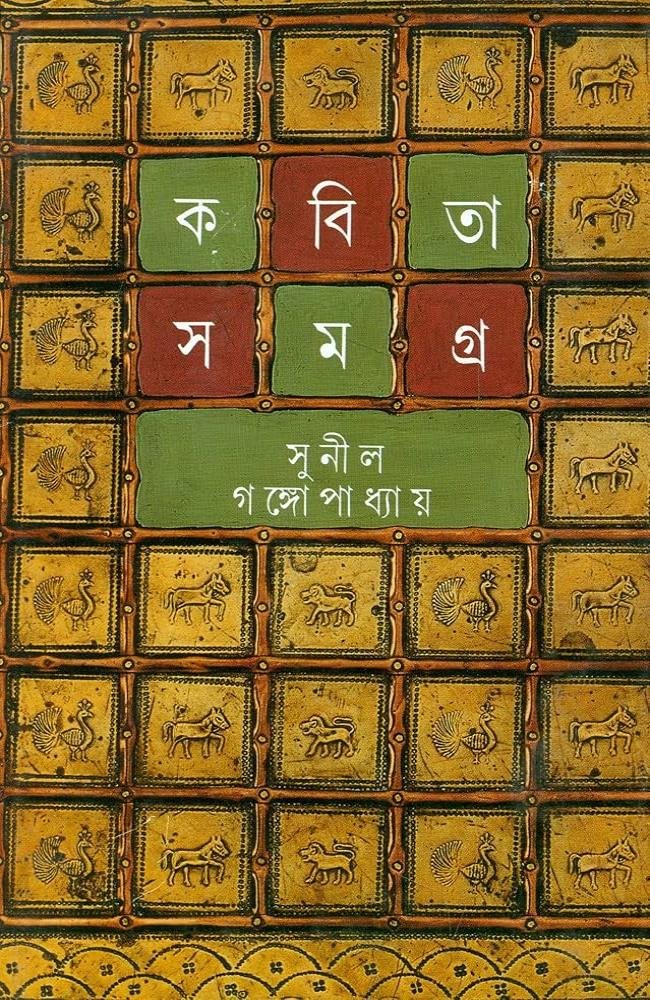 কবিতা
সমগ্র
সুনীল
গঙ্গোপাধ্যায়